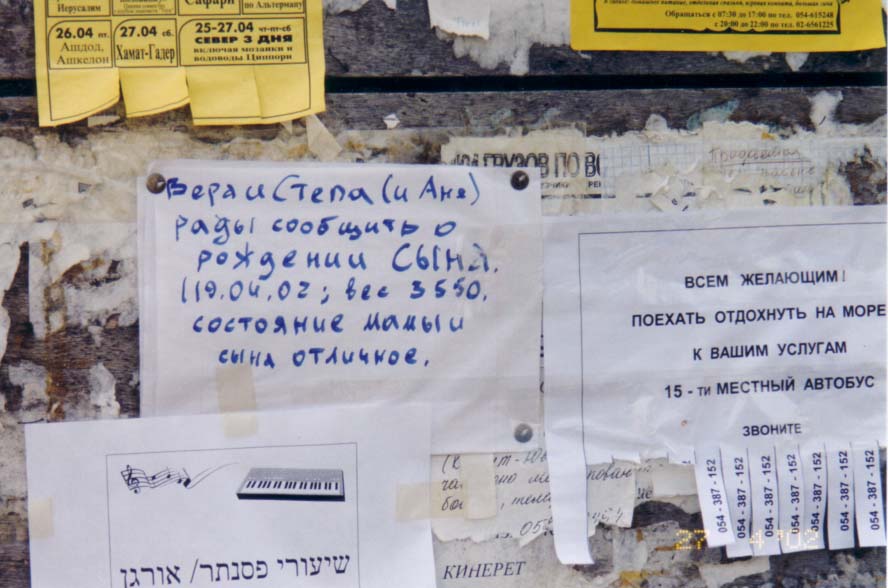 Иерусалим
Сафари
по Альтерману
26.04 пт.
Ашдод,
Ашкелон
27.04 сб.
Хамат-Гадер
25-27.04 чт-пт-сб
СЕВЕР 3 ДНЯ
включая мозаики и
водоводы Циппори
Обращаться с 07:30 до 17:00 по тел. 054-615248
с 20:00 до 22:00 по тел. 02-6561225
ГРУЗОВ ПО
Продаётся
Вера и Степа (и Аня)
рады сообщить о
рождении СЫНА.
(19.04.02; вес 3550,
состояние мамы и
сына отличное.
ВСЕМ ЖЕЛАЮЩИМ!
ПОЕХАТЬ ОТДОХНУТЬ НА МОРЕ
К ВАШИМ УСЛУГАМ
15 - ти МЕСТНЫЙ АВТОБУС
ЗВОНИТЕ
054 - 387 - 152
054 - 387 - 152
054 - 387 - 152
054 - 387 - 152
054 - 387 - 152
054 - 387 - 152
שיעורי פסנתר/ אורגן
КИНЕРЕТ
27 4 '02